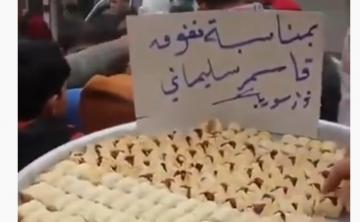 بمناسبة نفوق
قاسم سليماني